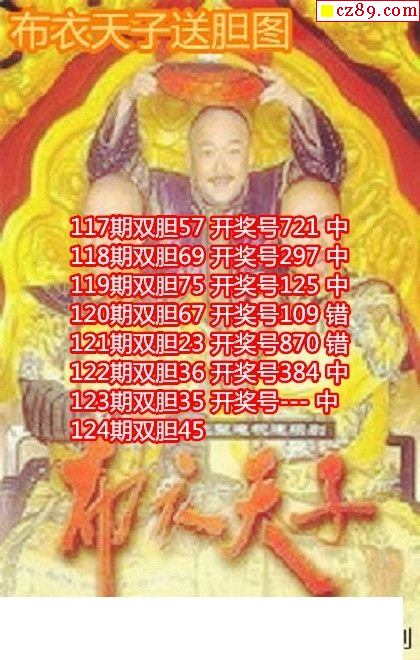 cz89.com
布衣天子送胆图
117期双胆57 开奖号721 中
118期双胆69 开奖号297 中
119期双胆75 开奖号125 中
120期双胆67 开奖号109 错
121期双胆23 开奖号870 错
122期双胆36 开奖号384 中
123期双胆35 开奖号--- 中
124期双胆45
布衣天子